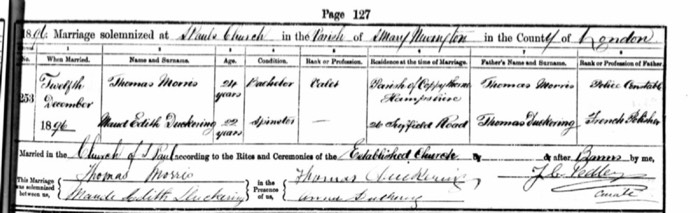 Page 127
1896. Marriage solemnized at St Pauls Church in the Parish of S Mary Newington in the County of London
No. When Married. Name and Surname. Age. Condition. Rank or Profession. Residence at the time of Marriage. Father's Name and Surname. Rank or Profession of Father.
253 Twelfth December 1896 Thomas Morris 24 years Bachelor Valet Parish of Copythorne Hampshire Thomas Morris Police Constable
Maud Edith Duckering 22 years Spinster — 26 Road Thomas Duckering French Polisher
Married in the Church of S Paul according to the Rites and Ceremonies of the Established Church by or after Banns by me,
This Marriage was solemnized between us, Thomas Morris Maude Edith Duckering in the Presence of us, Thomas Duckering Duckering J. C. Pedley Curate